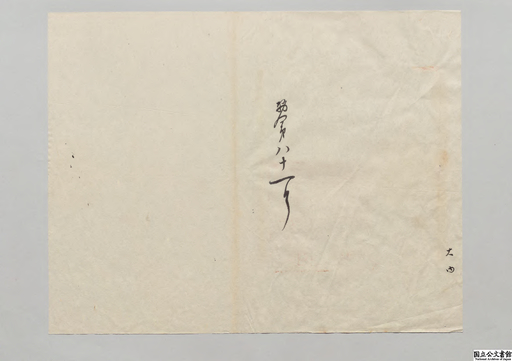 第八十一号
大内
国立公文書館
National Archives of Japan